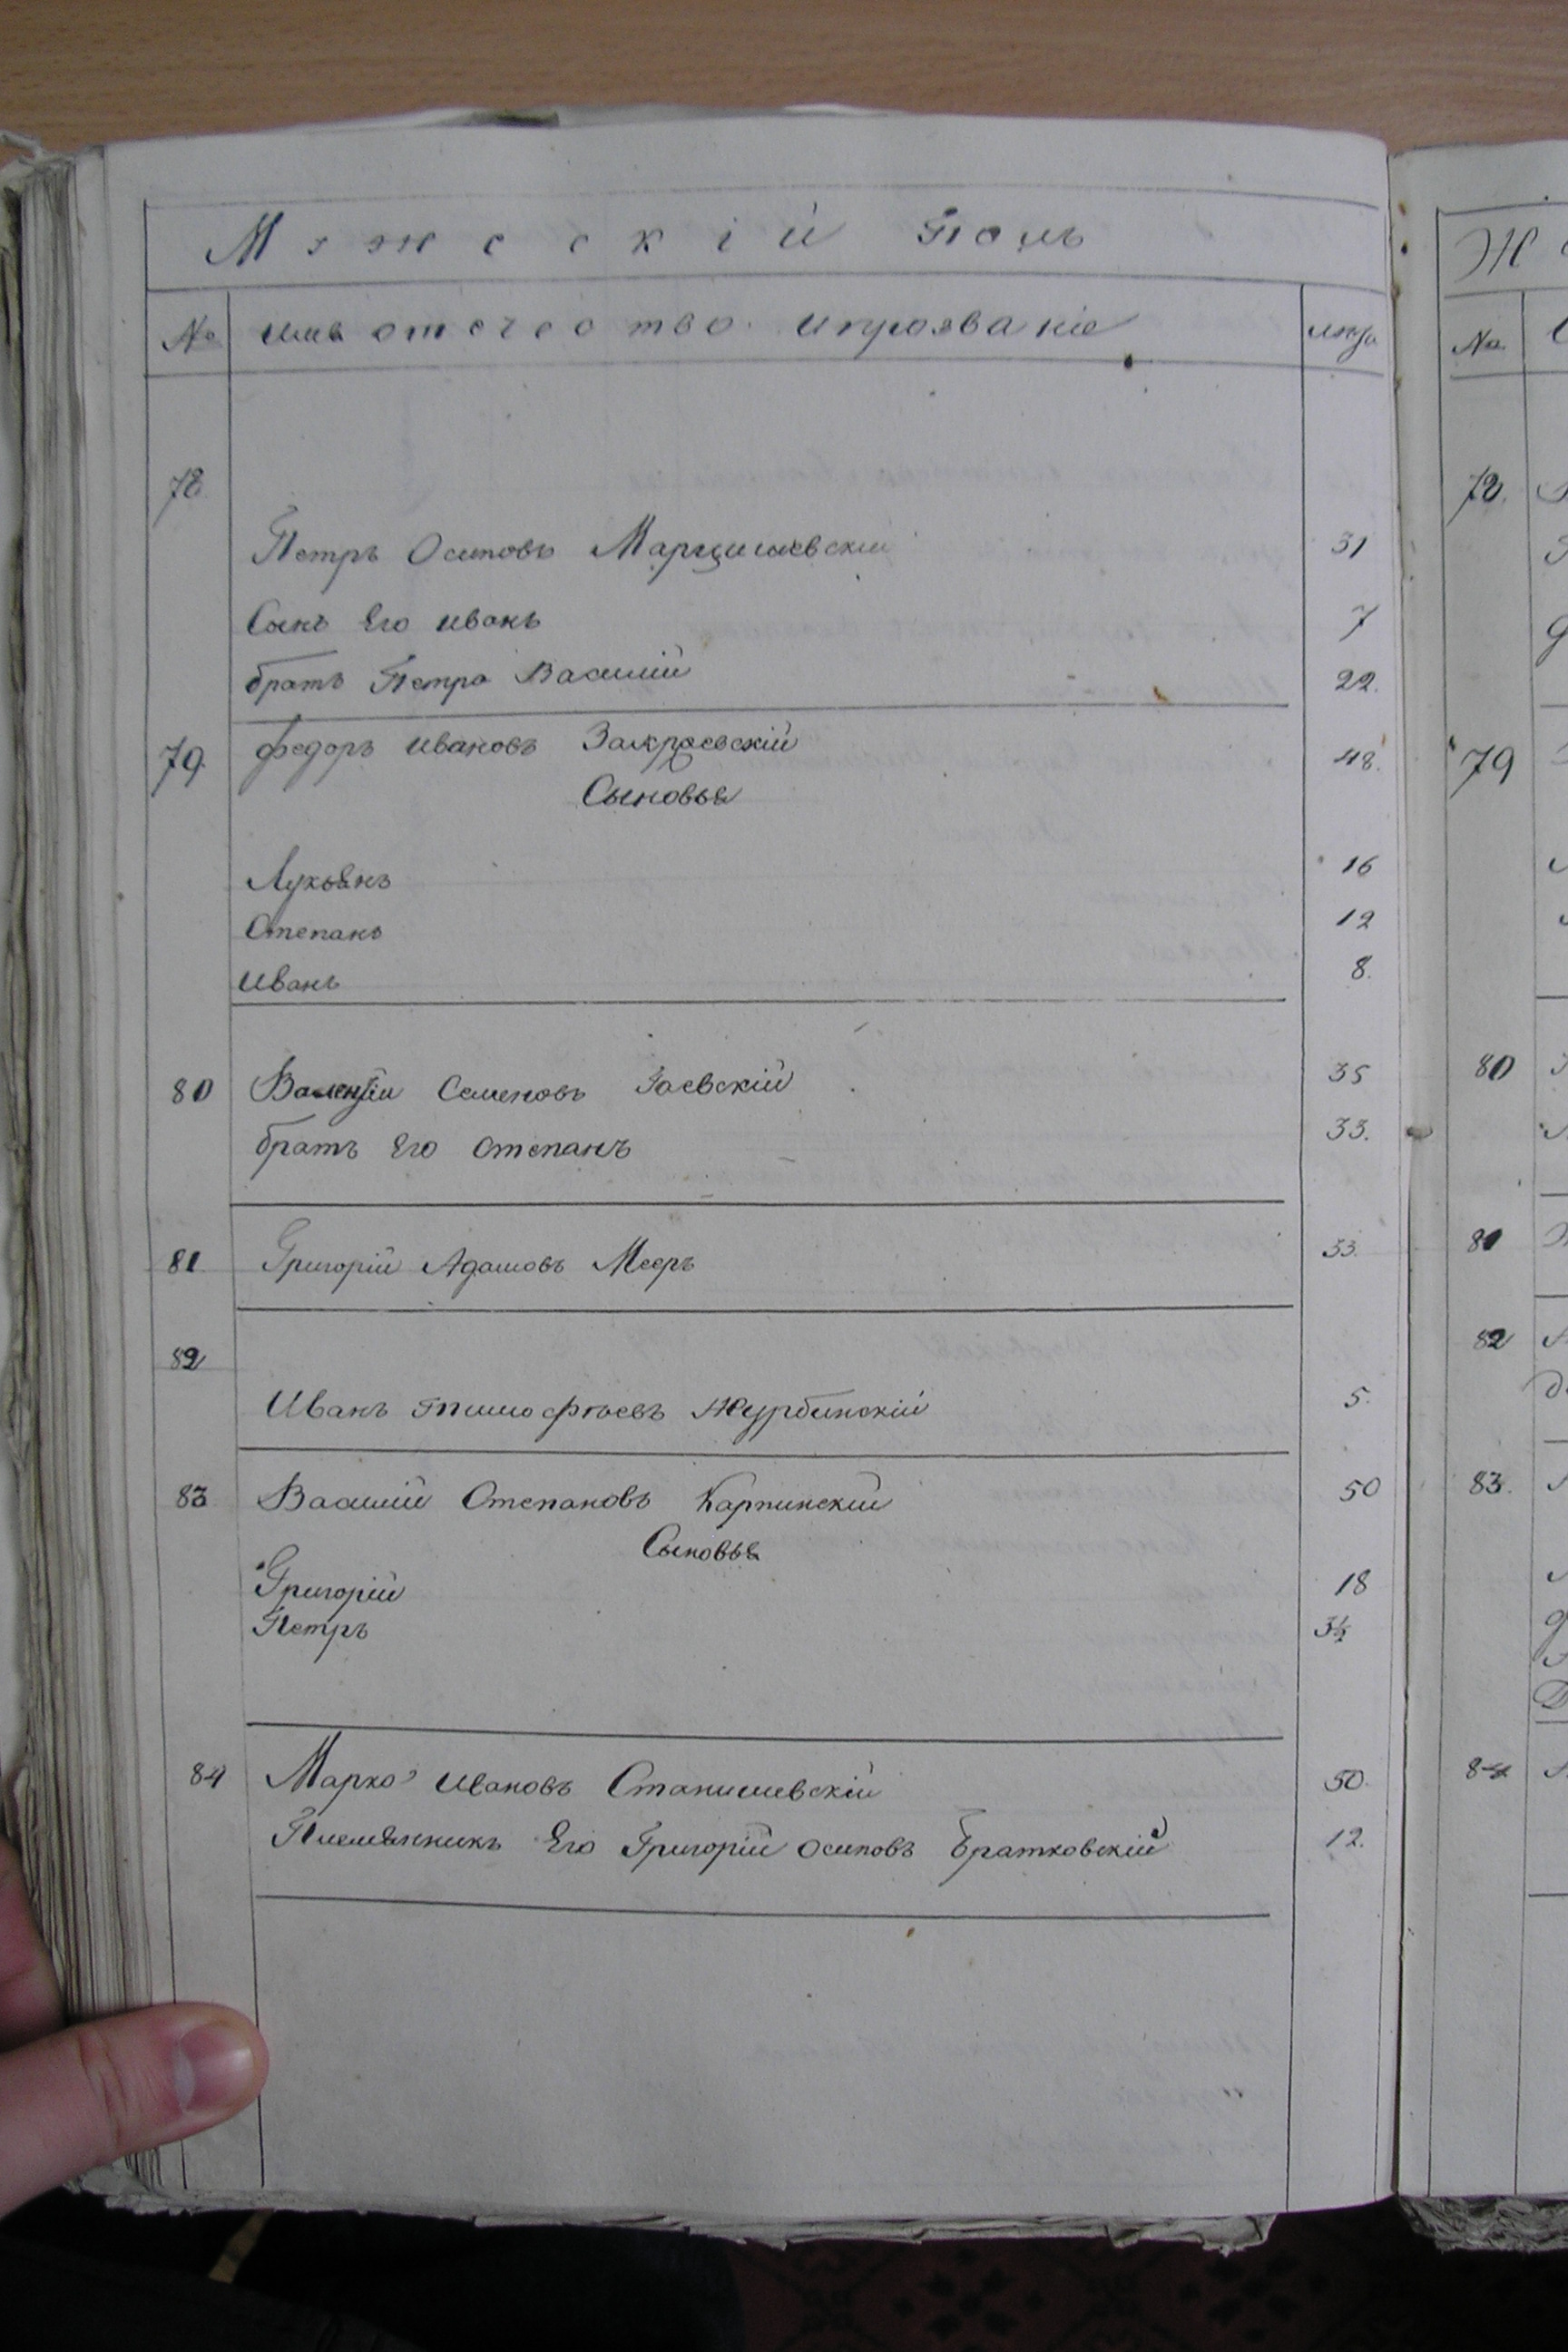 Мужескій Полъ
№ имя отечество ипрозваніе лѣта
78
Петръ Осиповъ Марцишевскій 31
Сынъ Его иванъ 7
братъ Петра Василій 22.
79. Федоръ ивановъ Закраевскій 48.
Сыновья
Лукьянъ 16
Степанъ 12
иванъ 8.
80 Семеновъ Гаевскій 35
братъ Его степанъ 33.
81 Григорій Адамовъ Мееръ 33.
82
Иванъ тимофѣевъ Журбинскій 5.
83 Василій Степановъ Карпинскій 50
Сыновья
Григорій 18
Петръ 3½
84 Марко ивановъ Станишевскій 50.
Племянникъ Его Григорій осиповъ Братковскій 12.
Ж
№
78.
79
80
81
82
83.
84